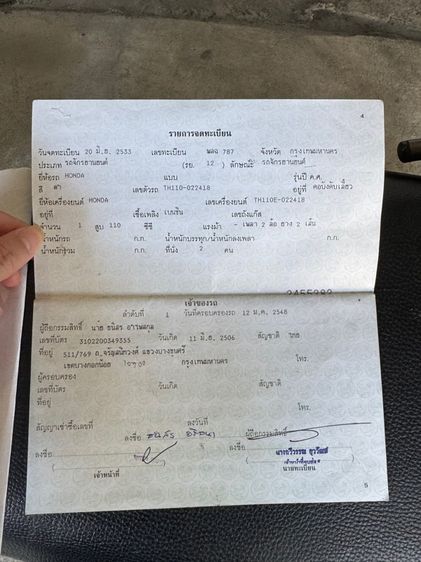 4
รายการจดทะเบียน
วันจดทะเบียน 20 มิ.ย. 2533 เลขทะเบียน 787 จังหวัด กรุงเทพมหานคร
ประเภท รถจักรยานยนต์ (รย. 12 ) ลักษณะ รถจักรยานยนต์
ยี่ห้อรถ HONDA แบบ รุ่นปี ค.ศ.
สี ดำ เลขตัวรถ TH110-022418 อยู่ที่ คอบังคับเลี้ยว
ยี่ห้อเครื่องยนต์ HONDA เลขเครื่องยนต์ TH110E-022418
อยู่ที่ เชื้อเพลิง เบนซิน เลขถังแก๊ส
จำนวน 1 สูบ 110 ซีซี แรงม้า - เพลา 2 ล้อ ยาง 2 เส้น
น้ำหนักรถ ก.ก. น้ำหนักบรรทุก/น้ำหนักลงเพลา ก.ก.
น้ำหนักรวม ก.ก. ที่นั่ง 2 คน
เจ้าของรถ
ลำดับที่ 1 วันที่ครอบครองรถ 12 ม.ค. 2548
ผู้ถือกรรมสิทธิ์ นาย
เลขที่บัตร 3102200349355 วันเกิด 11 มิ.ย. 2506 สัญชาติ ไทย
ที่อยู่ 511/769 ถ.จรัญสนิทวงศ์ แขวงบางขุนศรี
เขตบางกอกน้อย กรุงเทพมหานคร โทร.
ผู้ครอบครอง
เลขที่บัตร วันเกิด สัญชาติ
ที่อยู่
โทร.
สัญญาเช่าซื้อเลขที่ ลงวันที่
ลงชื่อ ผู้ถือกรรมสิทธิ์
ลงชื่อ ลงชื่อ
เจ้าหน้าที่ นายทะเบียน
5